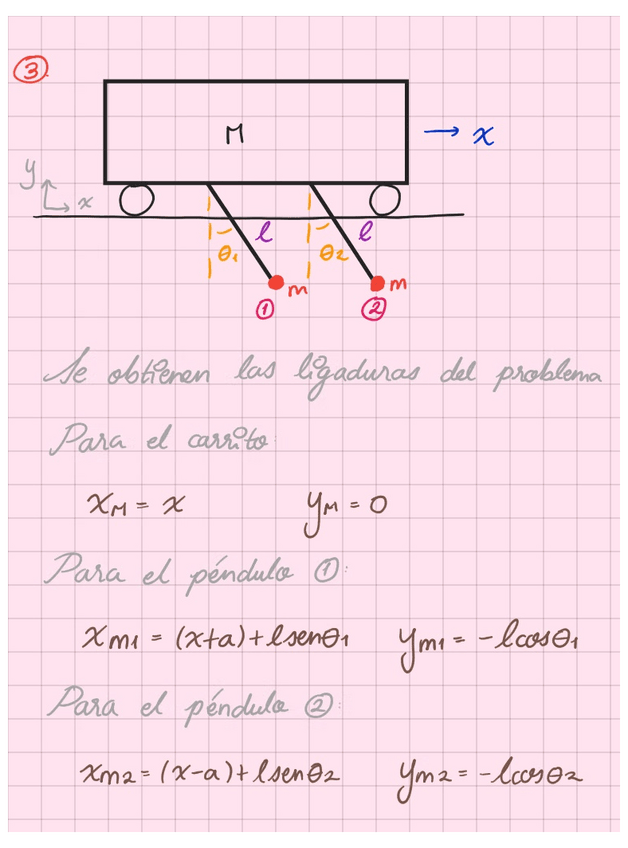 3
M
→ x
y
x
θ₁ l θ₂ l
m m
1 2
Se obtienen las ligaduras del problema
Para el carrito:
x_M = x y_M = 0
Para el péndulo ①:
x_m1 = (x+a)+lsenθ₁ y_m1 = -lcosθ₁
Para el péndulo ②:
x_m2 = (x-a)+lsenθ₂ y_m2 = -lcosθ₂